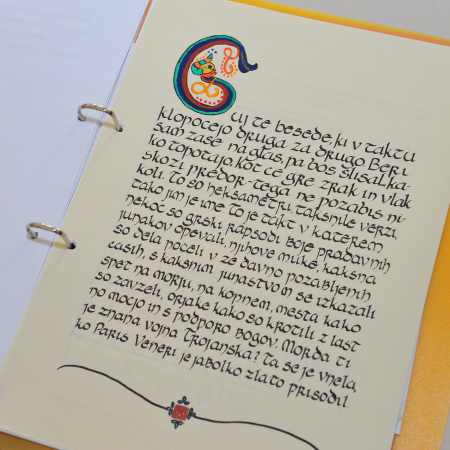 Čuj te besede, ki v taktu
klopočejo druga za drugo. Beri
sam zase na glas, pa boš slišal, ka-
ko topotajo, kot če gre zrak in vlak
skozi predor - tega ne pozabiš ni-
koli. To so heksametri, takšnile verzi,
tako jim je ime. To je takt v katerem
nekoč so grški rapsodi boje pradavnih
junakov opevali, njihove muke, kakšna
so dela počeli v že davno pozabljenih
časih, s kakšnim junaštvom se izkazali
spet na morju, na kopnem, mesta kako
so zavzeli, orjake kako so krotili z last
no močjo in s podporo bogov. Morda ti
je znana vojna Trojanska? Ta se je vnela,
ko Paris Veneri je jabolko zlato prisodil.